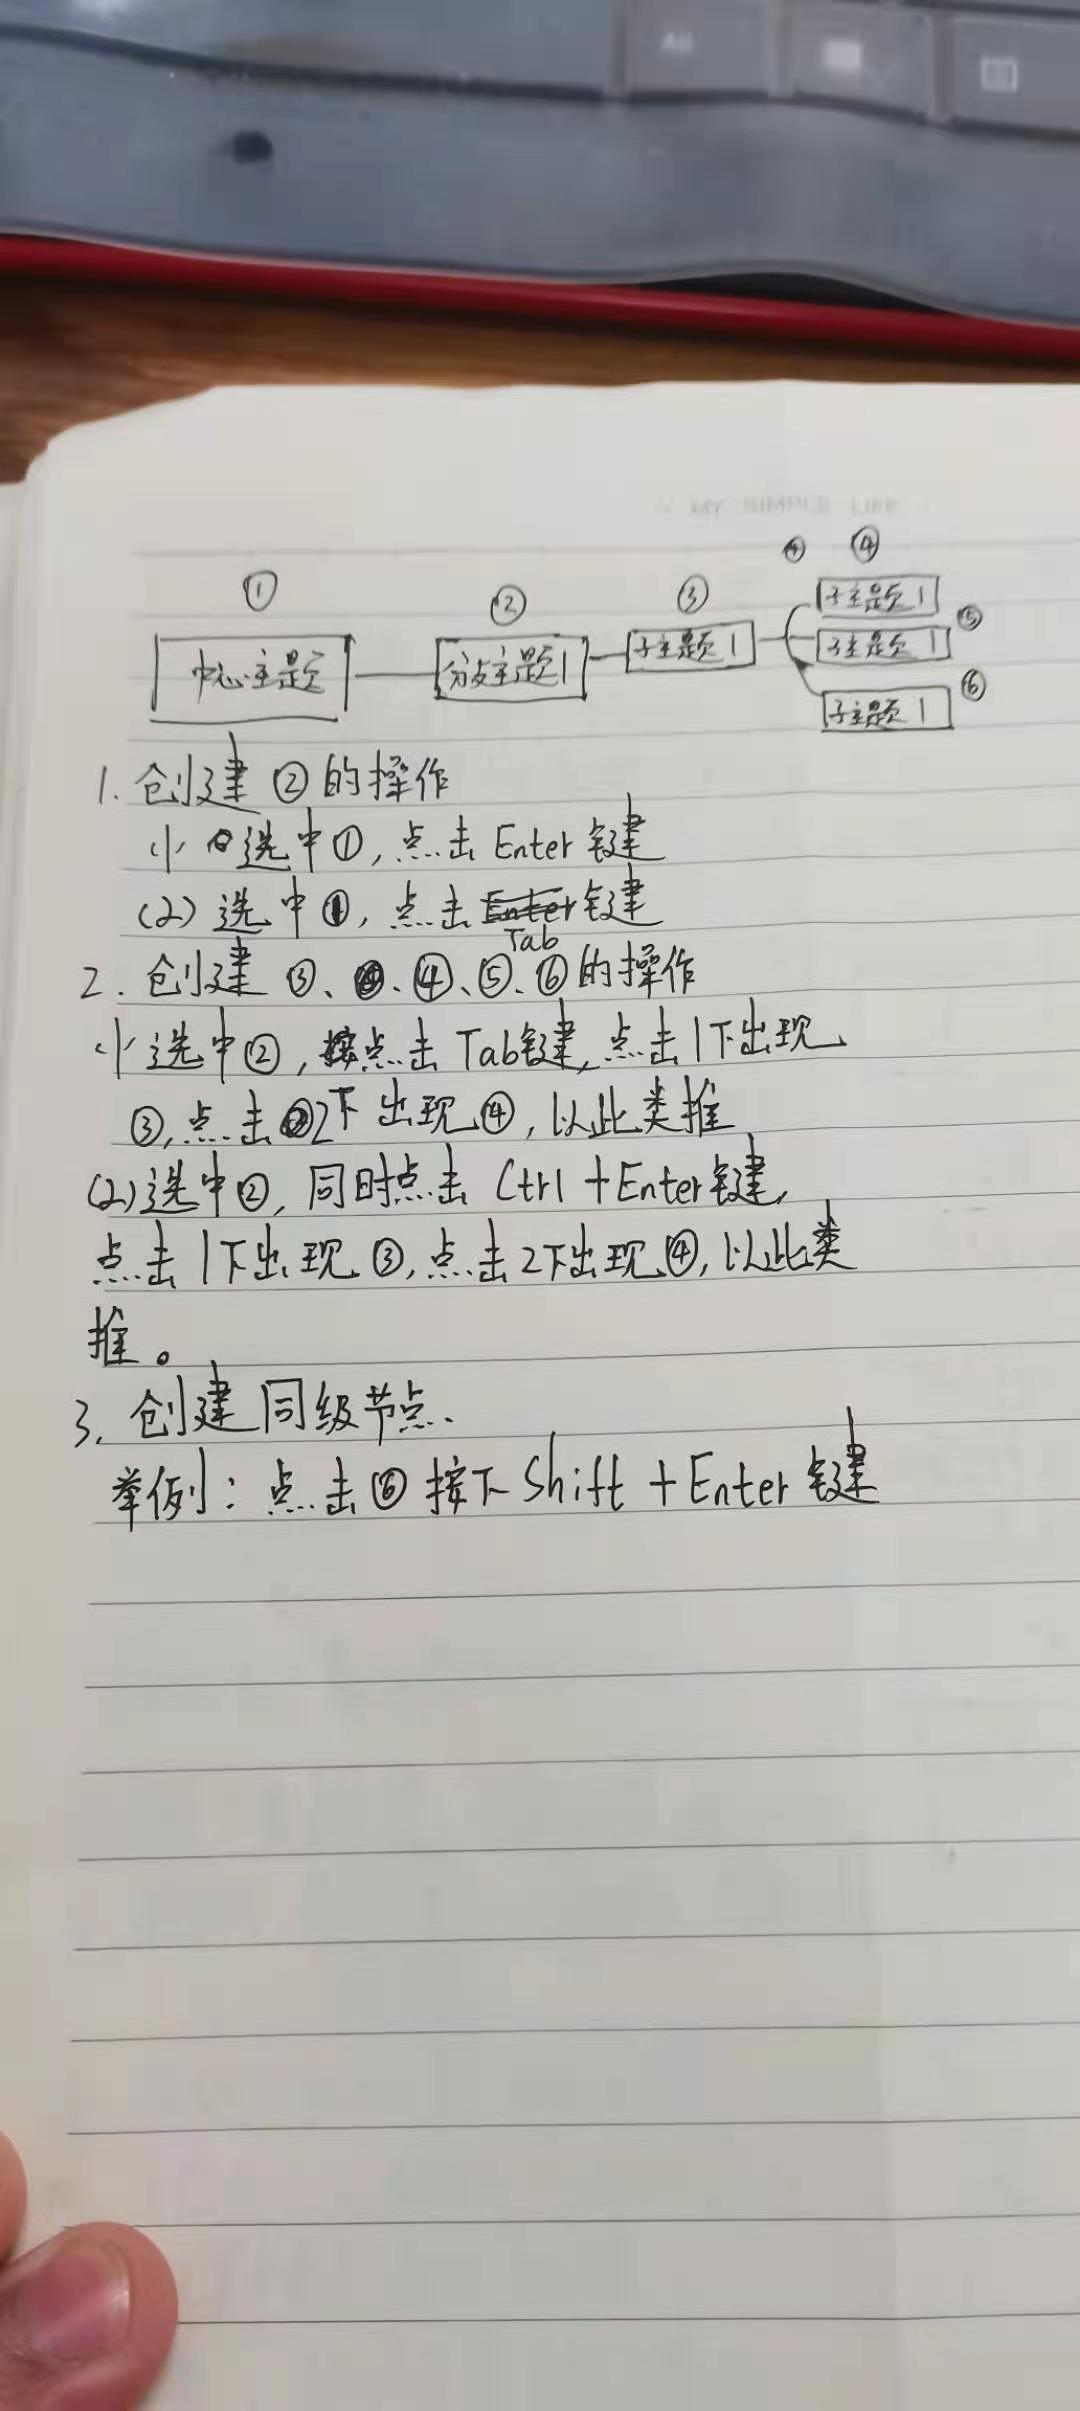 ① ② ③ ④ ④
中心主题 分支主题1 子主题1 子主题1
子主题1 ⑤
子主题1 ⑥
1. 创建②的操作
(1) 选中①,点击Enter键
(2) 选中①,点击Tab键
2. 创建③、④、⑤、⑥的操作
(1) 选中②,点击Tab键,点击1下出现
③,点击2下出现④,以此类推
(2)选中②,同时点击Ctrl+Enter键,
点击1下出现③,点击2下出现④,以此类
推。
3. 创建同级节点.
举例:点击⑥按下Shift+Enter键